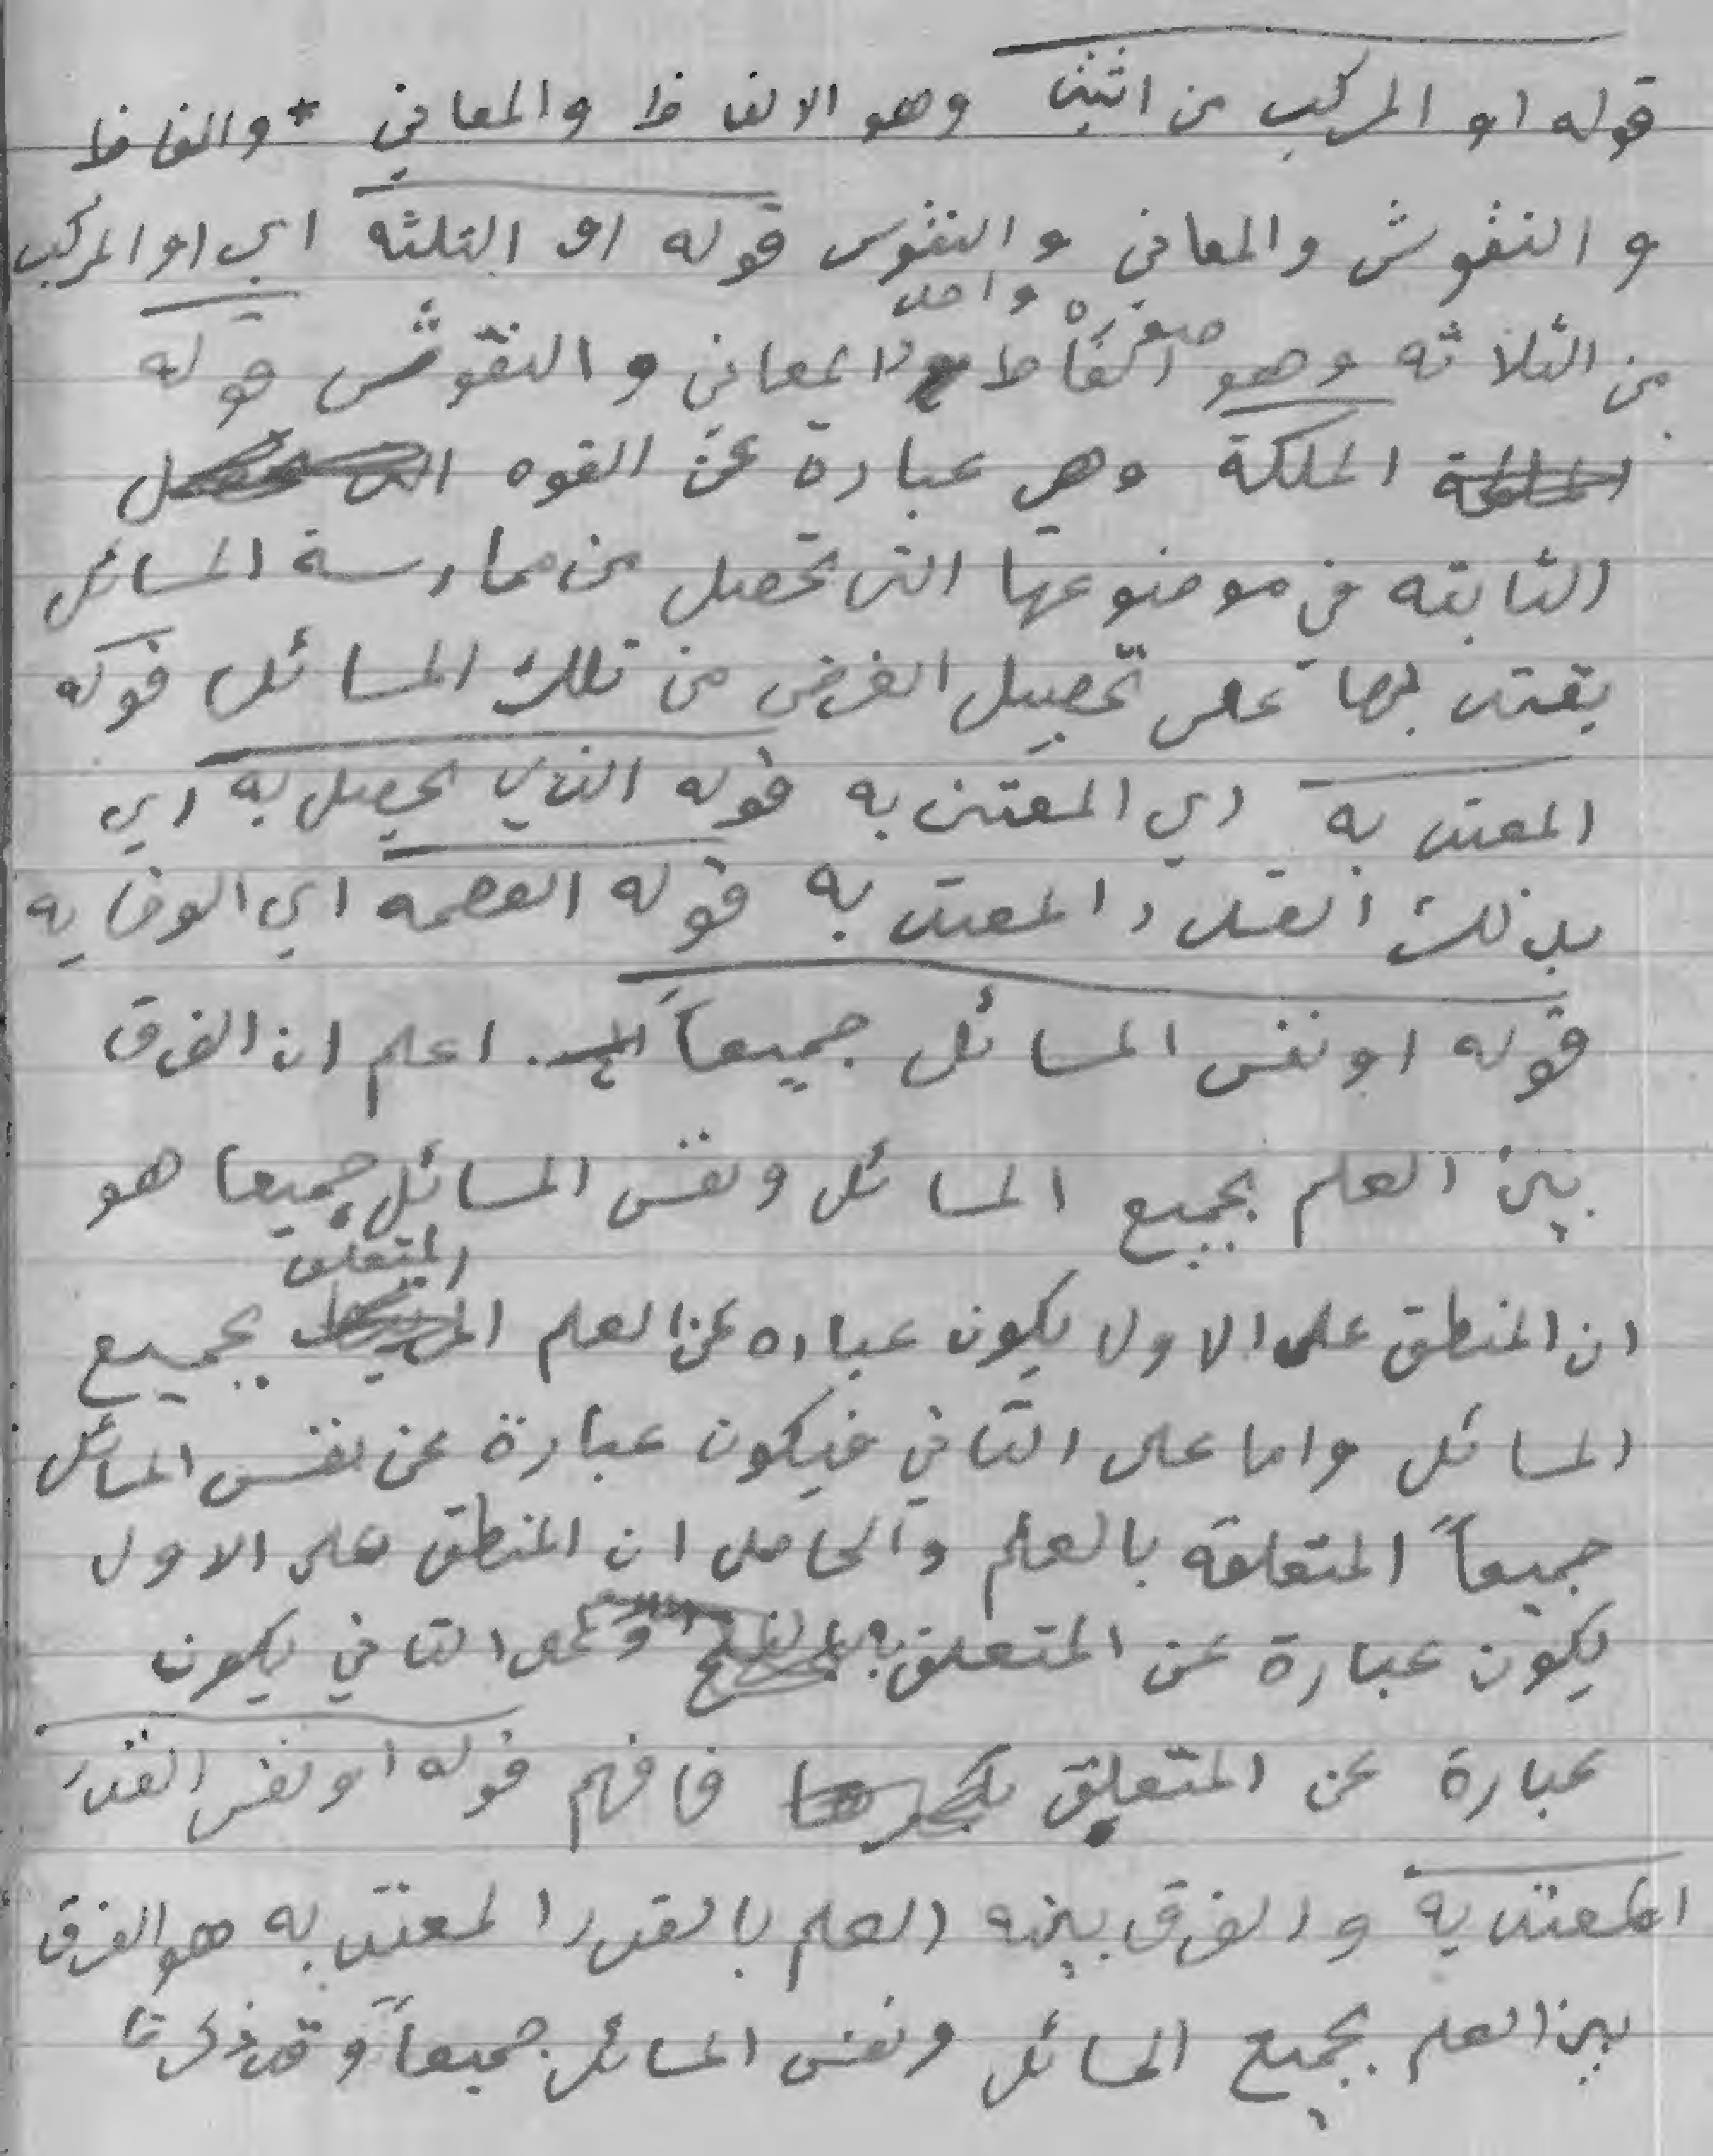 قوله او المركب من اثنين وهو الالفاظ والمعاني * والفاظ
و النقوش والمعاني والنقوش قوله او الثلثه اي او المركب
واحد
من الثلاثه وهو الفاظ والمعاني و النقوش قوله
الملكة وهي عبارة عن القوه
الثابته في موضوعها التى تحصل من ممارسة المسائل
يقتد بها على تحصيل الغرض من تلك المسائل قوله
المعتد به اي المعتنى به قوله الذي يحصل به اي
بذلك القدر المعتد به قوله العصمه اي الوقايه
قوله او نفس المسائل جميعاً اعلم ان الفرق
بين العلم بجميع المسائل ونفس المسائل جميعا هو
المتعلق
ان المنطق على الاول يكون عباره عن العلم بجميع
المسائل واما على الثاني فيكون عبارة عن نفس المسائل
جميعاً المتعلقه بالعلم والحاصل ان المنطق على الاول
يكون عبارة عن المتعلق وعلى الثاني يكون
عبارة عن المتعلق فافهم قوله او نفس القدر
المعتد به والفرق بينه العلم بالقدر المعتد به هو الفرق
بين العلم بجميع المسائل ونفس المسائل جميعاً وقد ذكرنا